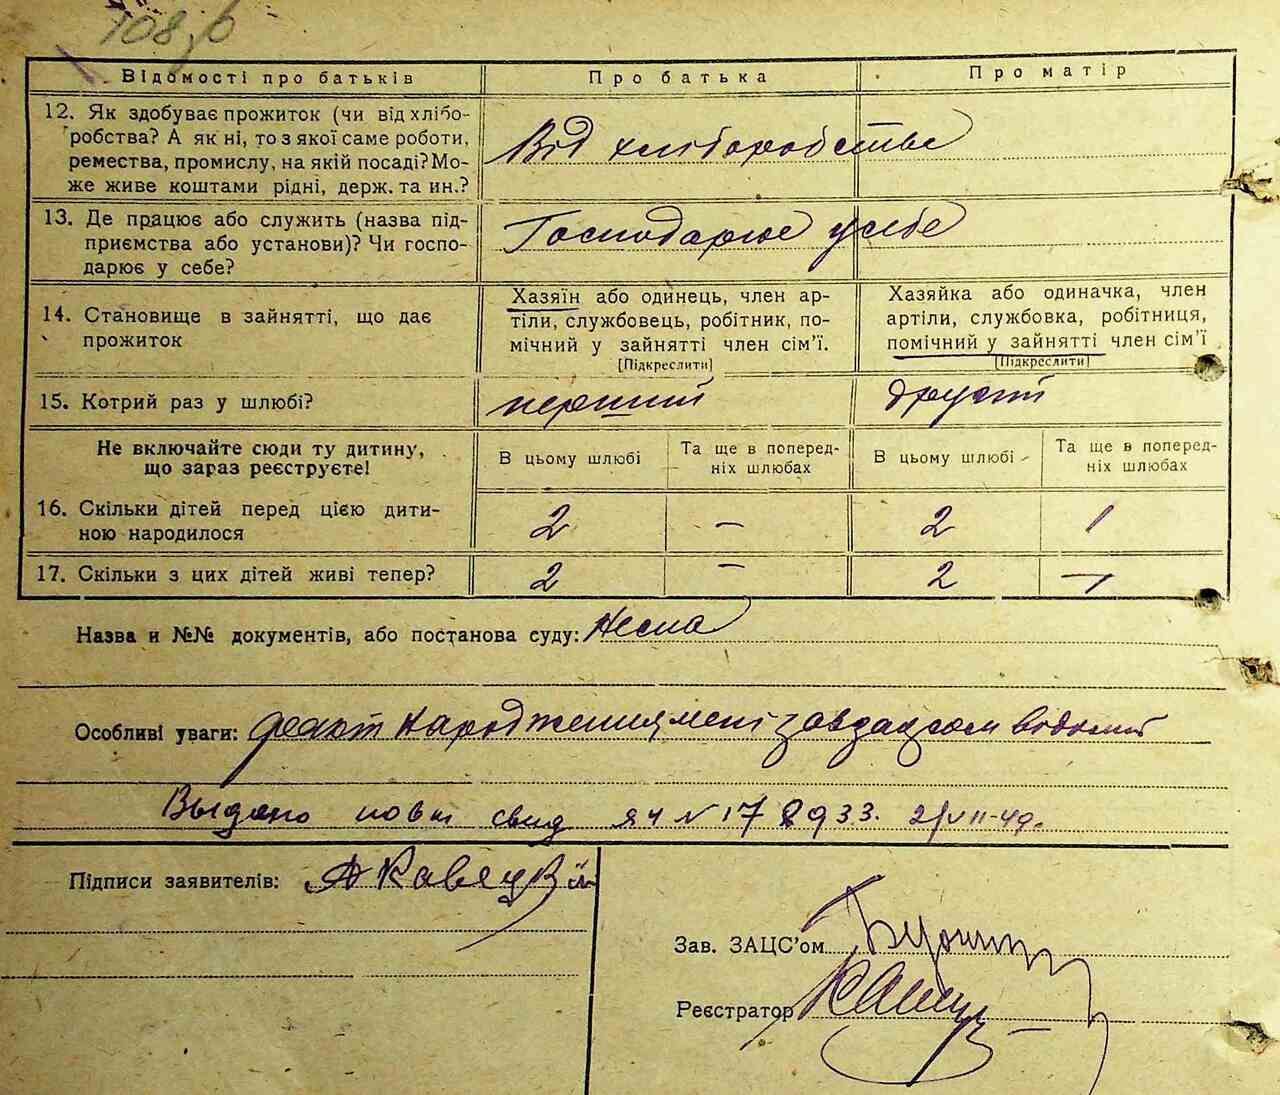 108 зб
Відомості про батьків Про батька Про матір
12. Як здобуває прожиток (чи від хлібо-
робства? А як ні, то з якої саме роботи,
ремества, промислу, на якій посаді? Мо-
же живе коштами рідні, держ. та ин.?
Від хліборобства
13. Де працює або служить (назва під-
приємства або установи)? Чи госпо-
дарює у себе?
Господарює у себе
14. Становище в зайнятті, що дає
прожиток
Хазяїн або одинець, член ар-
тіли, службовець, робітник, по-
мічний у зайнятті член сім'ї.
[Підкреслити]
Хазяйка або одиначка, член
артіли, службовка, робітниця,
помічний у зайнятті член сім'ї
[Підкреслити]
15. Котрий раз у шлюбі? перший другий
Не включайте сюди ту дитину,
що зараз реєструєте!
В цьому шлюбі
Та ще в поперед-
ніх шлюбах
В цьому шлюбі
Та ще в поперед-
ніх шлюбах
16. Скільки дітей перед цією дити-
ною народилося
2 – 2 1
17. Скільки з цих дітей живі тепер? 2 – 2 –
Назва и №№ документів, або постанова суду: Нема
Особливі уваги: факт народження мені завзагсом відомий
Выдано повт свид ЯЧ N 178933. 21/VII-49.
Підписи заявителів: А Кавецкй
Зав. ЗАЦС'ом
Реєстратор